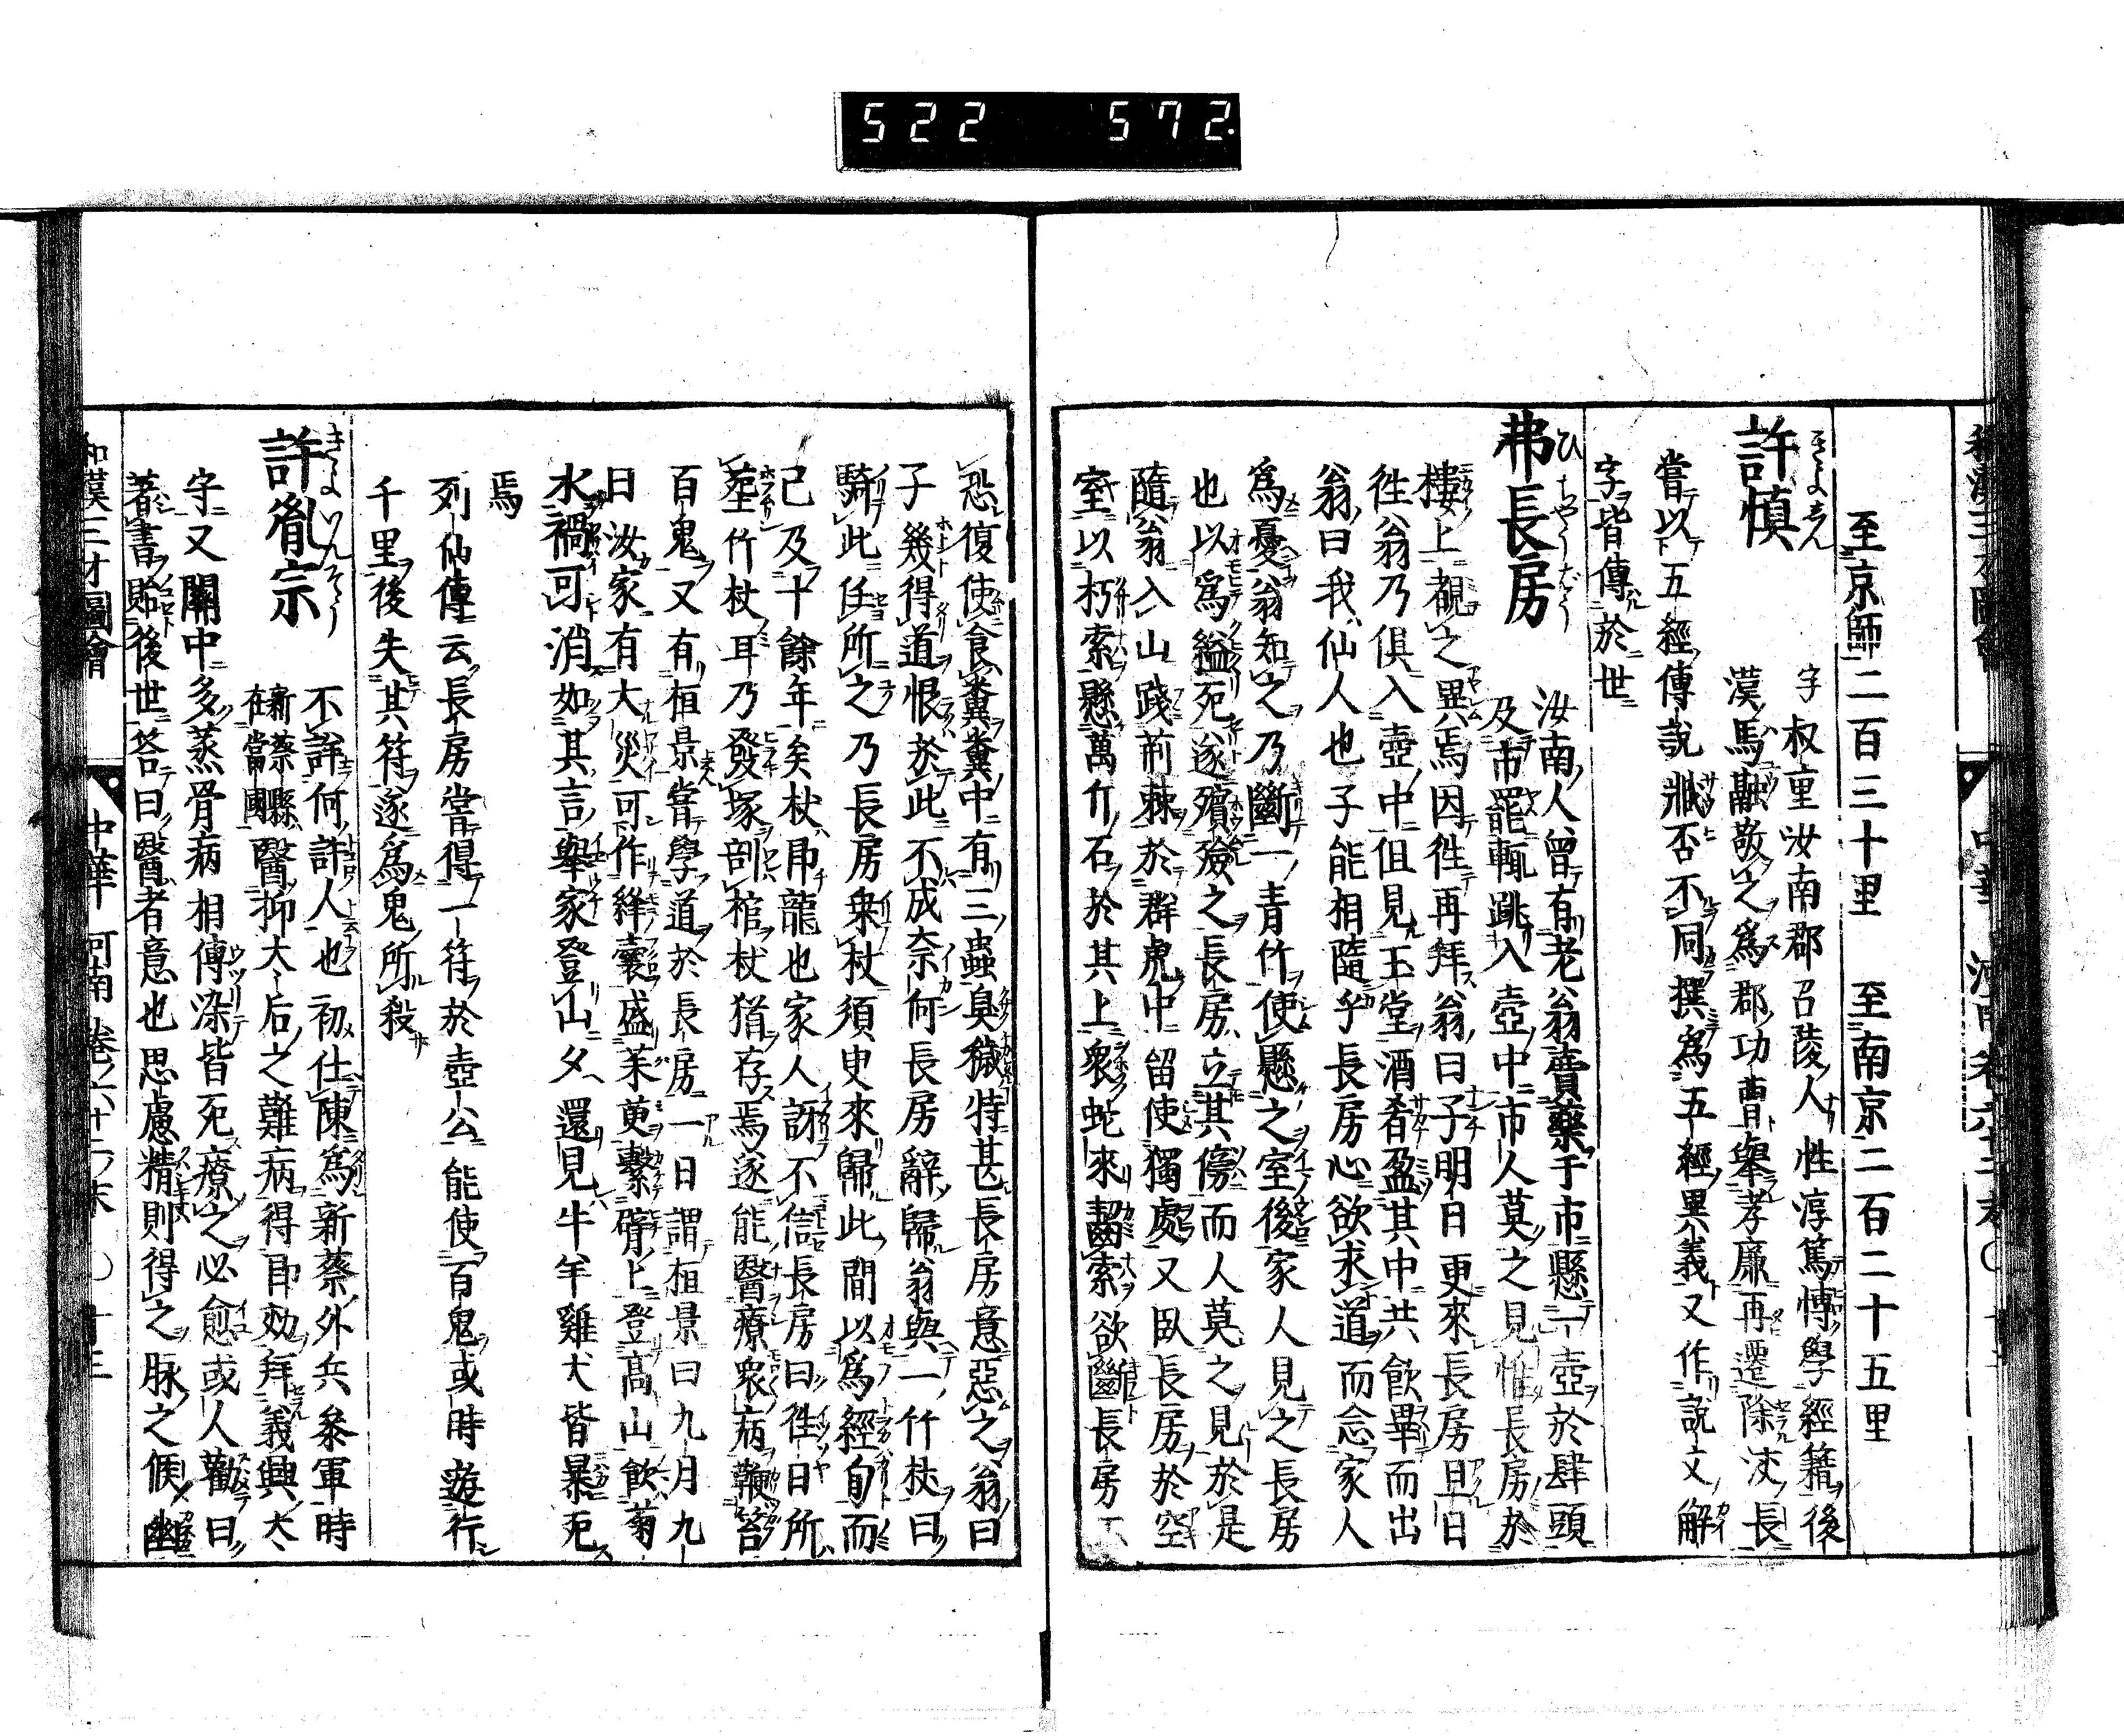 522 572.
至京師二百三十里　至南京二百二十五里
許慎　字叔重汝南郡召陵人性淳篤博學經籍後
漢馬融敬之爲郡功曹舉孝廉再遷除洨長
嘗以五經傳說臧否不同撰爲五經異義又作說文解
字皆傳於世
弗長房　汝南人曾有老翁賣藥于市懸一壺於肆頭
及市罷輒跳入壺中市人莫之見惟長房於
樓上覩之異焉因徃再拜翁曰子明日更來長房旦日
徃翁乃俱入壺中但見玉堂酒肴盈其中共飲畢而出
翁曰我仙人也子能相隨乎長房心欲求道而念家人
爲憂翁知之乃斷一青竹使懸之室後家人見之長房
也以爲縊死遂殯殮之長房立其傍而人莫之見於是
隨翁入山踐荊棘於群虎中留使獨處又臥長房於空
室以朽索懸萬斤石於其上衆蛇來齧索欲斷長房不
恐復使食糞糞中有三蟲臭穢特甚長房意惡之翁曰
子幾得道恨於此不成奈何長房辭歸翁與一竹杖曰
騎此任所之乃長房乗杖須臾來歸此間以爲經旬而
已及十餘年矣杖即龍也家人訝不信長房曰徃日所
葬竹杖耳乃發塚剖棺杖猶存焉遂能醫療衆病鞭笞
百鬼又有桓景嘗學道於長房一日謂桓景曰九月九
日汝家有大災可作絳囊盛茱萸繫臂上登高山飲菊
水禍可消如其言舉家登山夕還見牛羊雞犬皆暴死
焉
列仙傳云長房嘗得一符於壺公能使百鬼或時遊行
千里後失其符遂爲鬼所殺
許胤宗　不詳何許人也初仕陳爲新蔡外兵叅軍時
新蔡縣在當國醫抑大后之難病得即効拜義興大
守又關中多蒸骨病相傳染皆死療之必愈或人勸曰
著書貽後世荅曰醫者意也思慮精則得之脉之候幽
和漢三才圖會　中華 河南 卷六十二ノ末 〇 十三